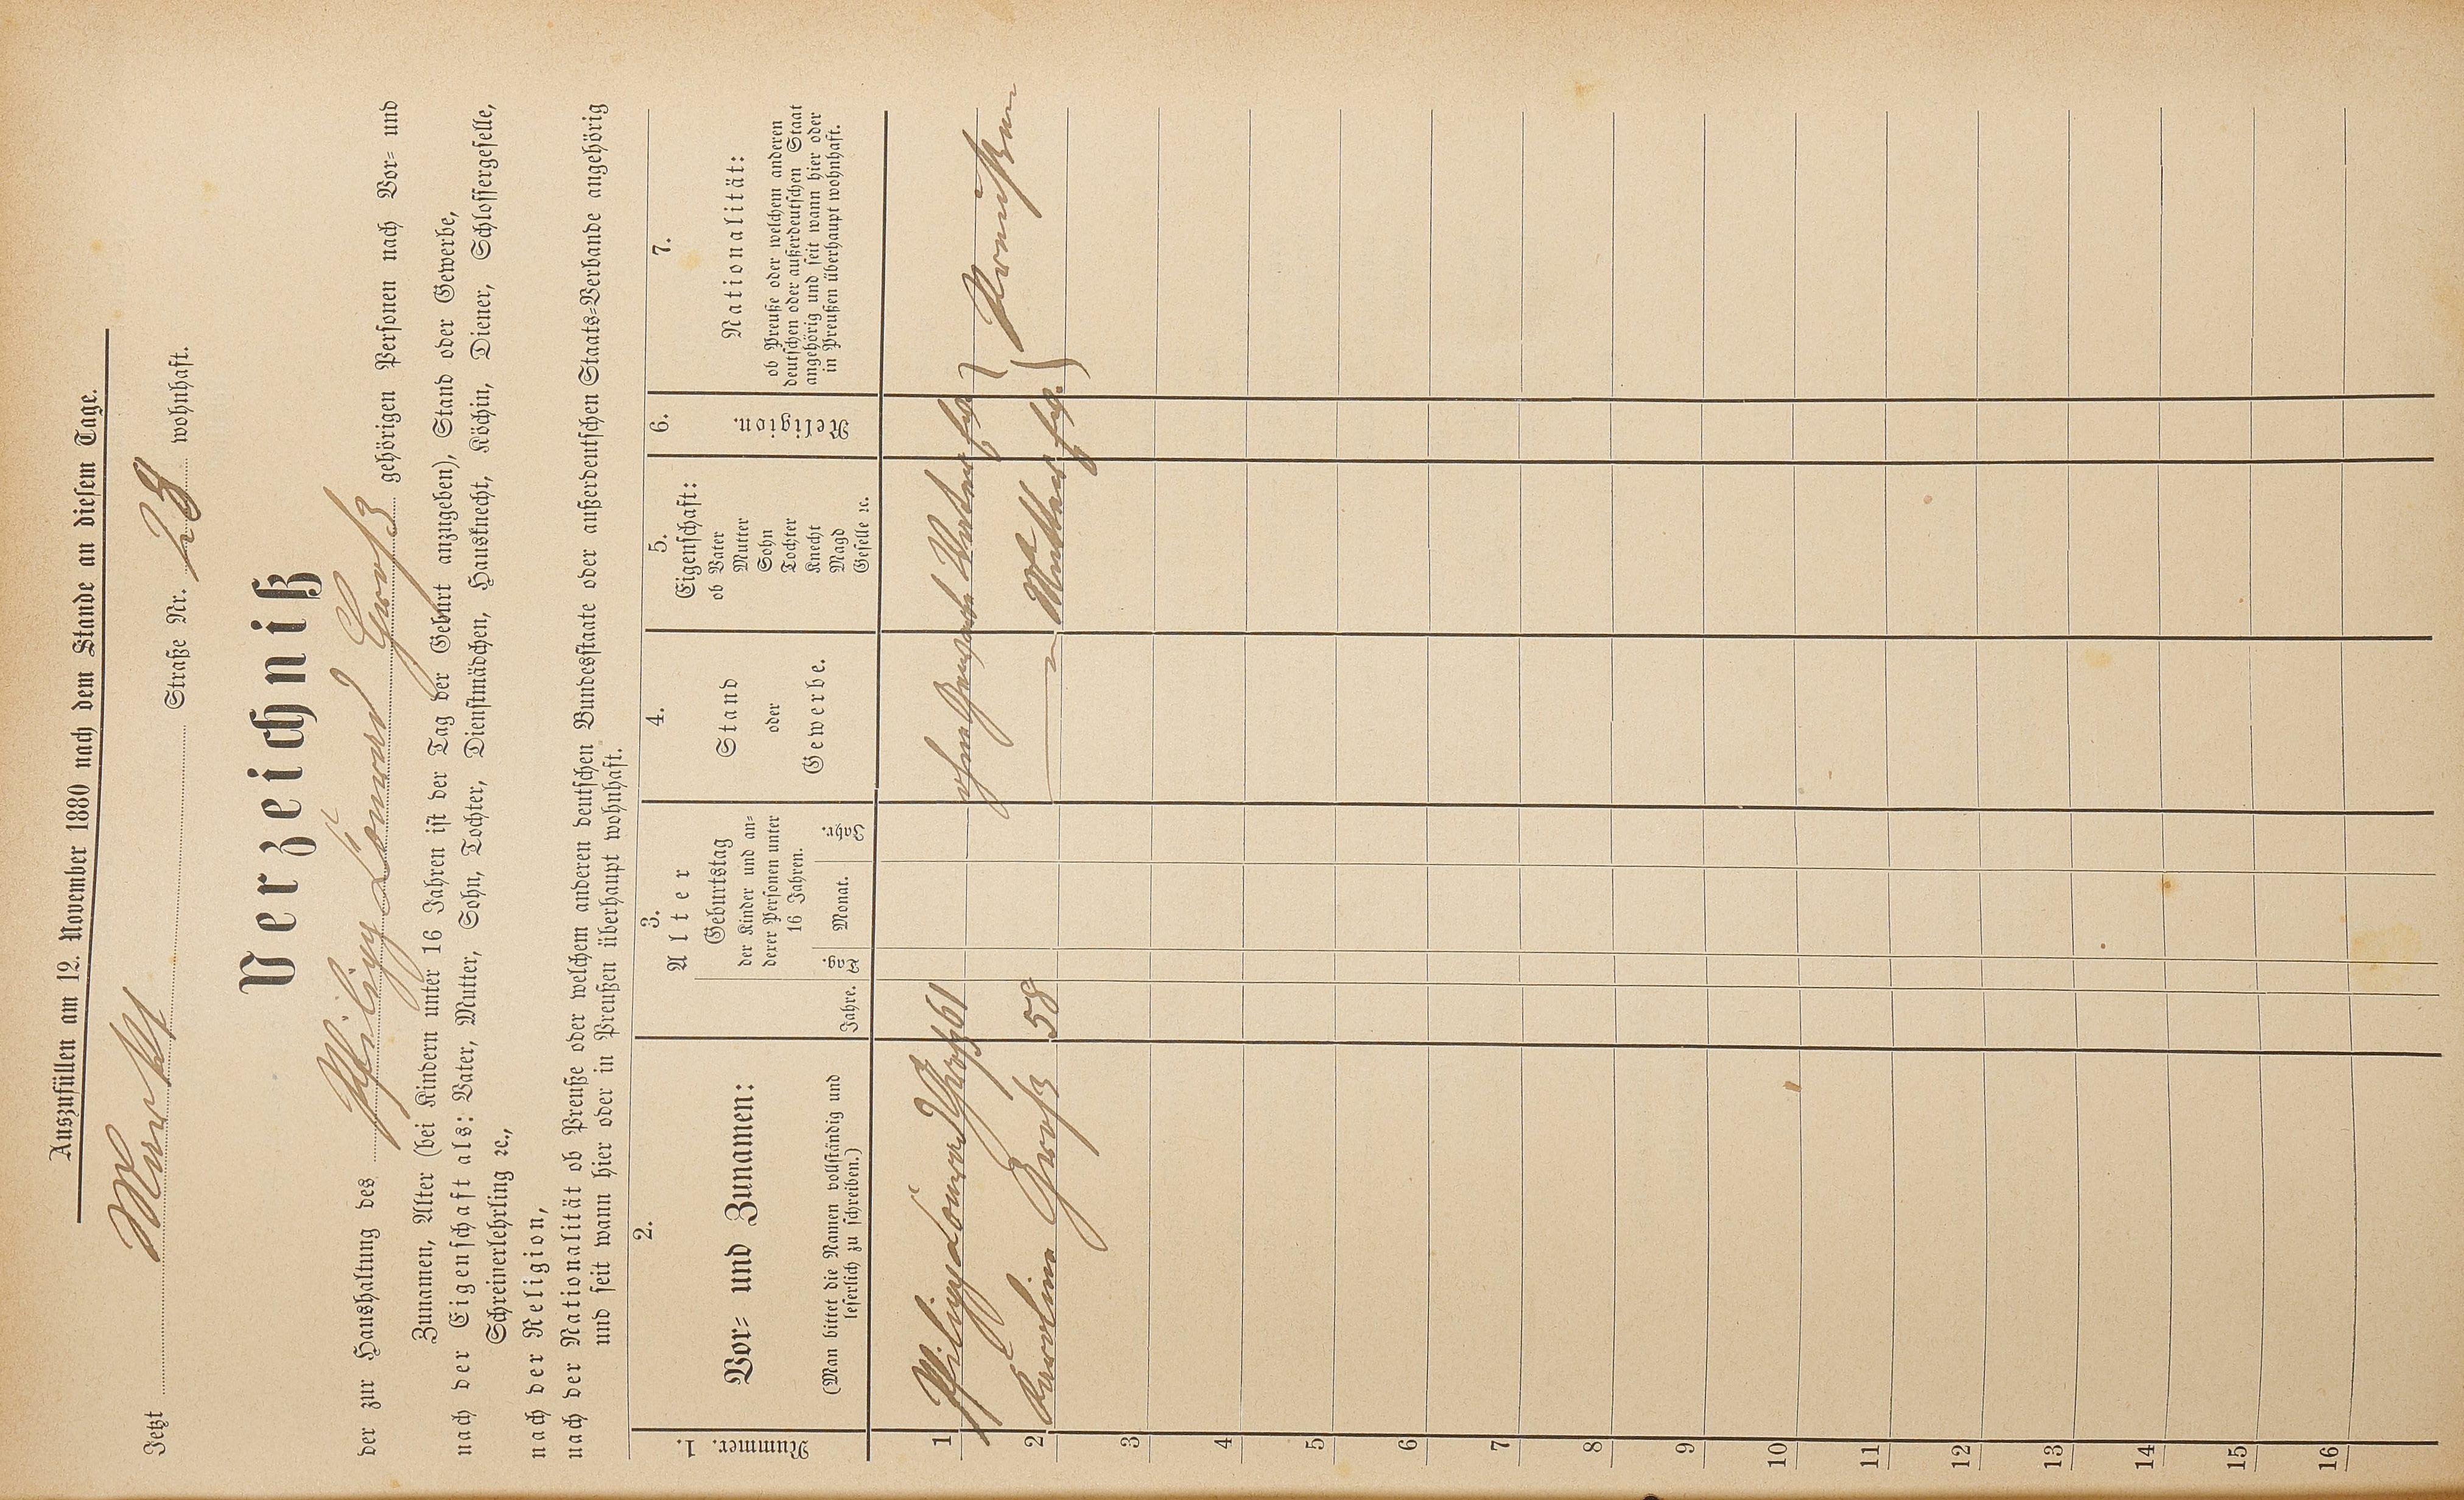 Auszufüllen am 12. November 1880 nach dem Stande an diesem Tage.
Jetzt Markt Straße Nr. 23 wohnhaft.
Verzeichniß
der zur Haushaltung des Philipp Conrad Groß gehörigen Personen nach Vor- und
Zunamen, Alter (bei Kindern unter 16 Jahren ist der Tag der Geburt anzugeben), Stand oder Gewerbe,
nach der Eigenschaft als: Vater, Mutter, Sohn, Tochter, Dienstmädchen, Hausknecht, Köchin, Diener, Schlossergeselle,
Schreinerlehrling ꝛc.,
nach der Religion,
nach der Nationalität ob Preuße oder welchem anderen deutschen Bundesstaate oder außerdeutschen Staats-Verbande angehörig
und seit wann hier oder in Preußen überhaupt wohnhaft.
1.
Nummer.
2.
Vor- und Zunamen:
(Man bittet die Namen vollständig und
leserlich zu schreiben.)
3.
Alter
Jahre.
Geburtstag
der Kinder und an-
derer Personen unter
16 Jahren.
Tag
Monat.
Jahr.
4.
Stand
oder
Gewerbe.
5.
Eigenschaft:
ob Vater
Mutter
Sohn
Tochter
Knecht
Magd
Geselle ꝛc.
6.
Religion.
7.
Nationalität:
ob Preuße oder welchem anderen
deutschen oder außerdeutschen Staat
angehörig und seit wann hier oder
in Preußen überhaupt wohnhaft.
1 Philipp Conrad Groß 61 ohne Gewerbe Vater
2 Karoline Groß 58 " Mutter
} Preußen
3
4
5
6
7
8
9
10
11
12
13
14
15
16